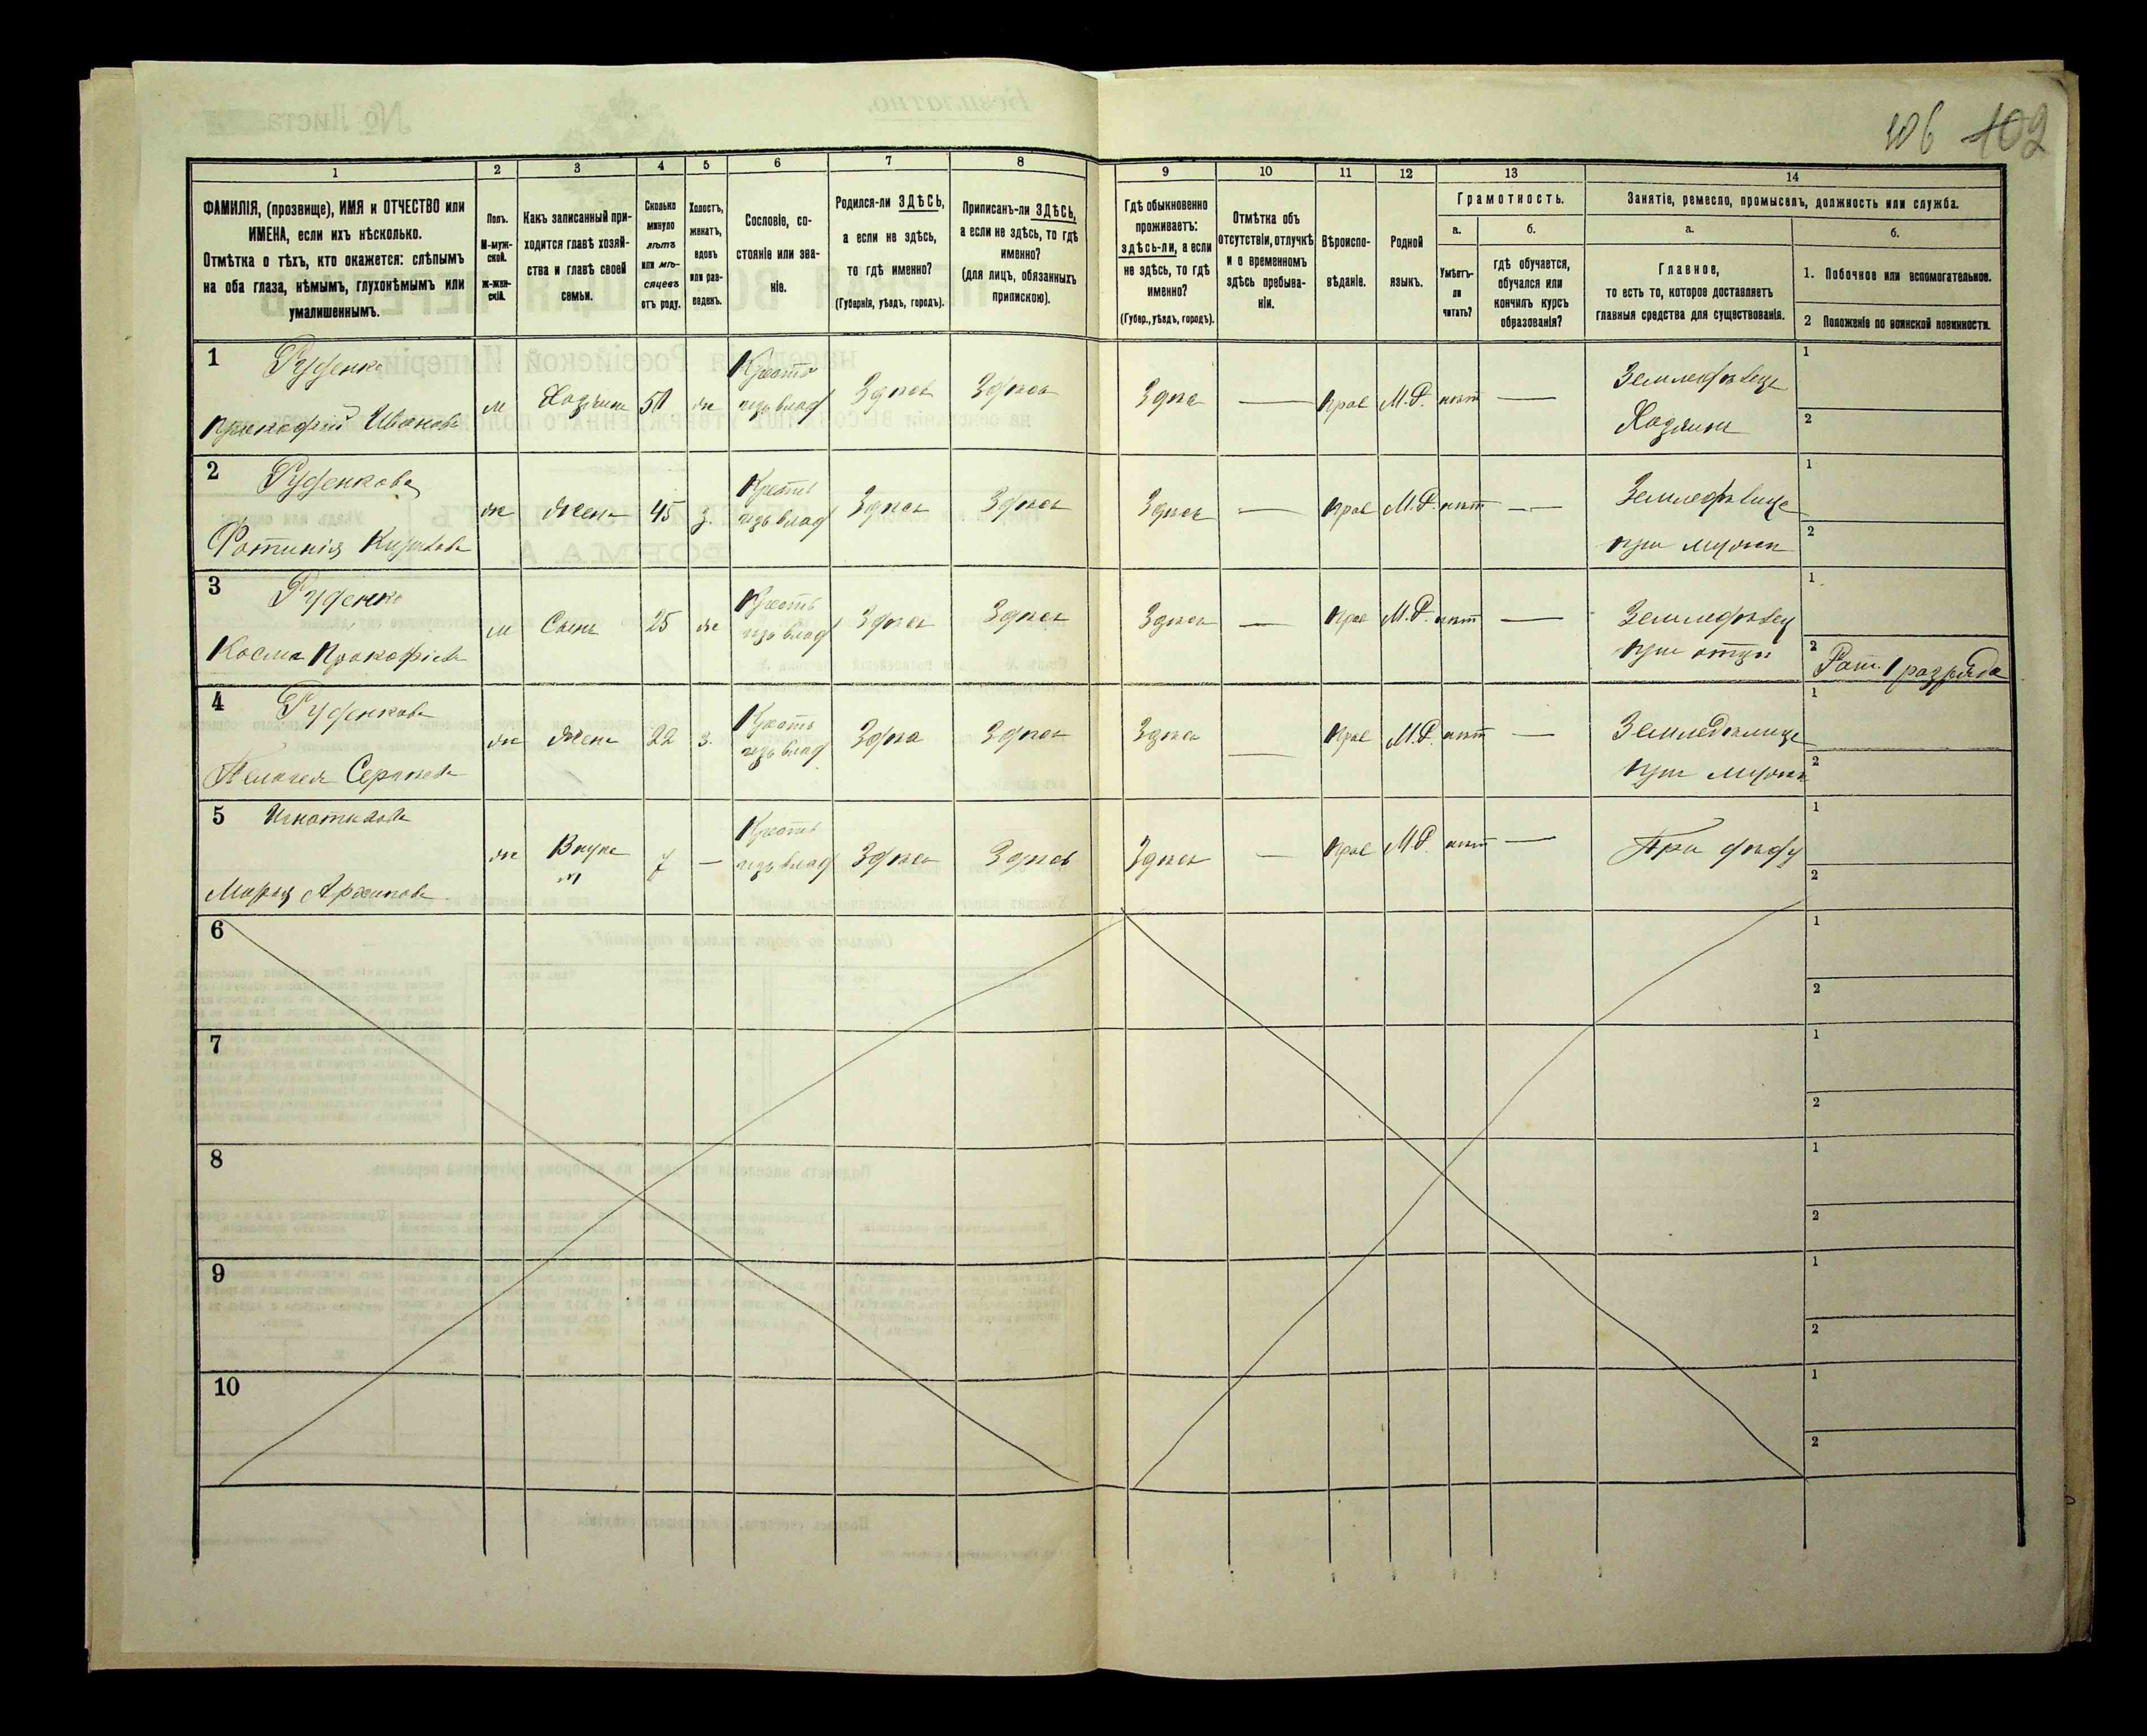 106 102
1 2 3 4 5 6 7 8 9 10 11 12 13 14
ФАМИЛІЯ, (прозвище), ИМЯ и ОТЧЕСТВО или
ИМЕНА, если ихъ нѣсколько.
Отмѣтка о тѣхъ, кто окажется: слѣпымъ
на оба глаза, нѣмымъ, глухонѣмымъ или
умалишеннымъ.
Полъ.
М-муж-
ской.
ж-жен-
скій.
Какъ записанный при-
ходится главѣ хозяй-
ства и главѣ своей
семьи.
Сколько
минуло
лѣтъ
или мѣ-
сяцевъ
отъ роду.
Холостъ,
женатъ,
вдовъ
или раз-
веденъ.
Сословіе, со-
стояніе или зва-
ніе.
Родился-ли ЗДѢСЬ,
а если не здѣсь,
то гдѣ именно?
(Губернія, уѣздъ, городъ).
Приписанъ-ли ЗДѢСЬ,
а если не здѣсь, то гдѣ
именно?
(для лицъ, обязанныхъ
припискою).
Гдѣ обыкновенно
проживаетъ:
здѣсь-ли, а если
не здѣсь, то гдѣ
именно?
(Губер., уѣздъ, городъ).
Отмѣтка объ
отсутствіи, отлучкѣ
и о временномъ
здѣсь пребыва-
ніи.
Вѣроиспо-
вѣданіе.
Родной
языкъ.
Грамотность.
а.
Умѣетъ-
ли
читать?
б.
гдѣ обучается,
обучался или
кончилъ курсъ
образованія?
Занятіе, ремесло, промыселъ, должность или служба.
а.
Главное,
то есть то, которое доставляетъ
главныя средства для существованія.
б.
1. Побочное или вспомогательное.
2 Положеніе по воинской повинности.
1 Руденко
Прокофій Ивановъ
м Хозяинъ 50 ж Крестъ
изъ влад Здѣсь Здѣсь Здѣсь — Прав М.Р. нѣт — Земледѣлецъ
Хозяинъ
1
2
2 Руденкова
Фотинія
ж Жена 45 з. Крестъ
изъ влад Здѣсь Здѣсь Здѣсь — Прав М.Р. нѣт — Земледѣлица
при мужѣ
1
2
3 Руденко
Косма Прокофіевъ
м Сынъ 25 ж Крестъ
изъ влад Здѣсь Здѣсь Здѣсь — Прав М.Р. нѣт — Земледѣлец
при отцѣ
1
2 Рат. 1 разряда
4 Руденкова
Пелагея Сергѣева
ж Жена 22 з. Крестъ
изъ влад Здѣсь Здѣсь Здѣсь — Прав М.Р. нѣт — Земледѣлица
при мужѣ
1
2
5 Игнатькова
Марія Архипова
ж Внука 7 — Крестъ
изъ влад Здѣсь Здѣсь Здѣсь — Прав М.Р. нѣт — При дѣду
1
2
6
1
2
7
1
2
8
1
2
9
1
2
10
1
2